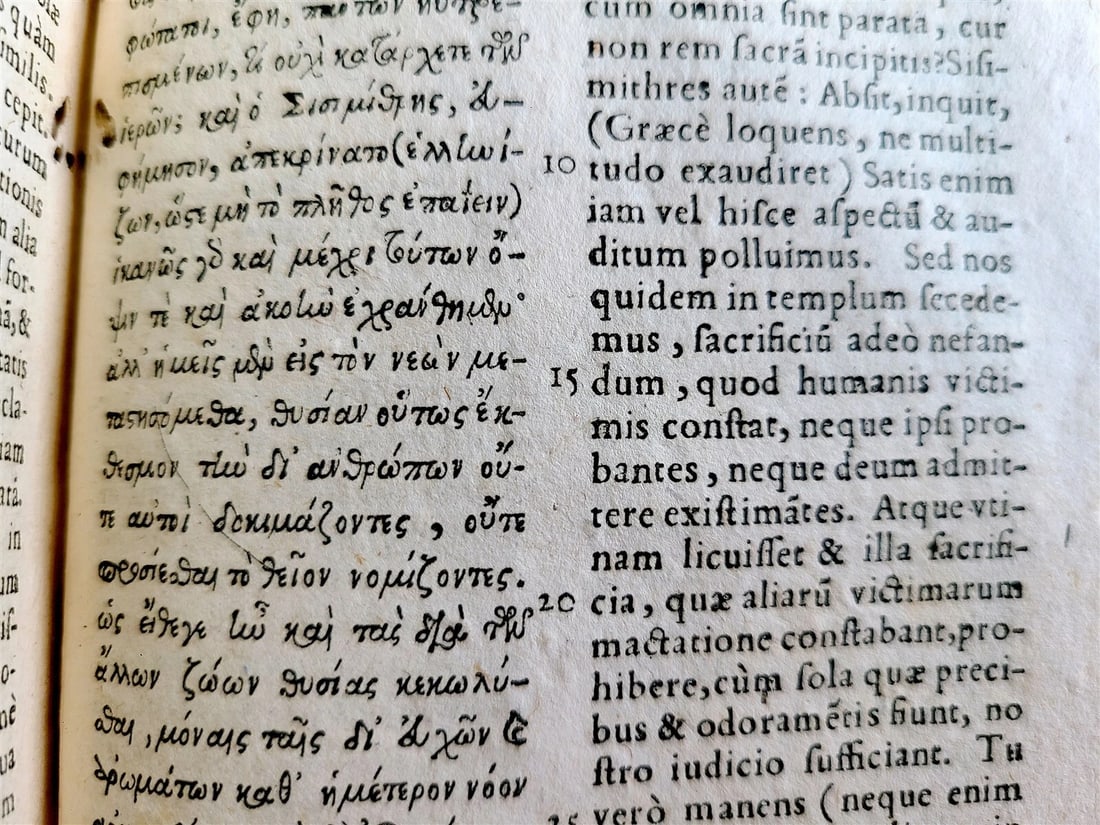 φώτατοι, ἔφη, παρ τῶν
πισμένων, καὶ οὐχὶ κατάρχετε τῶν
ἱερῶν; καὶ ὁ Σισιμίθρης, εὐ-
φήμησον, ἀπεκρίνατο (ἑλλίων ί-
ζων, ὥστε μὴ τὸ πλῆθος ἐπαΐειν)
ἱκανῶς γὸ καὶ μέχρι τούτων ὄ-
ψιν τε καὶ ἀκοὴν ἐχράνθημεν·
ἀλλ' ἡμεῖς μὲν εἰς τὸν νεὼν με-
ταστησόμεθα, θυσίαν οὕτως ἔκ-
θεσμον τὴν δι' ἀνθρώπων οὔ-
τε αὐτοὶ δοκιμάζοντες, οὔτε
προσίεσθαι τὸ θεῖον νομίζοντες.
ὡς εἴθεγε ἦν καὶ τὰς διὰ τῶν
ἄλλων ζώων θυσίας κεκωλύ-
σθαι, μόναις ταῖς δι' εὐχῶν καὶ
ἀρωμάτων καθ' ἡμέτερον νόον
cum omnia ſint parata, cur
non rem ſacrā incipitis? Siſi-
mithres autē: Abſit, inquit,
(Græcè loquens, ne multi-
10 tudo exaudiret) Satis enim
iam vel hiſce aſpectū & au-
ditum polluimus. Sed nos
quidem in templum ſecede-
mus, ſacrificiū adeò nefan-
15 dum, quod humanis victi-
mis conſtat, neque ipſi pro-
bantes, neque deum admit-
tere exiſtimātes. Atque vti-
nam licuiſſet & illa ſacrifi-
20 cia, quæ aliarū victimarum
mactatione conſtabant, pro-
hibere, cùm ſola quæ preci-
bus & odoramētis fiunt, no
ſtro iudicio ſufficiant. Tu
25 verò manens (neque enim